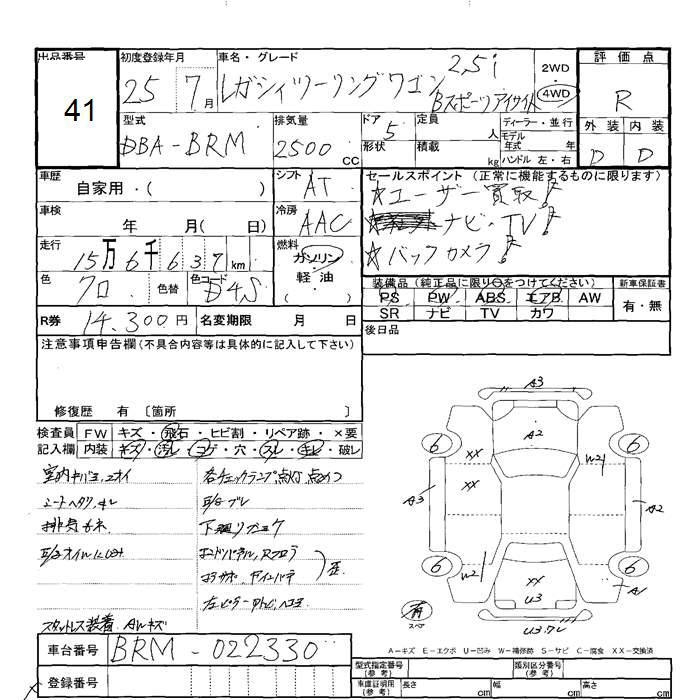 出品番号 初度登録年月 車名・グレード 評価点
41 25 7月 レガシィツーリングワゴン 2.5i 2WD R
Bスポーツアイサイト 4WD
型式 排気量 ドア 定員 ディーラー・並行 外装 内装
DBA-BRM 2500cc 5 人 モデル年式 年式 D D
形状 積載 kg ハンドル 左・右
車歴 シフト セールスポイント (正常に機能するものに限ります)
自家用・( ) AT ☆ユーザー買取!
車検 冷房
年 月( 日) AAC ナビ・TV!
走行 燃料 ☆バックカメラ!
15万6千637km ガソリン
軽油
色 色替 色コード 装備品 (純正品に限り〇をつけてください) 新車保証書
クロ D4S PS PW ABS エアB AW 有・無
R券 14.300円 名変期限 月 日 SR ナビ TV カワ
注意事項申告欄(不具合内容等は具体的に記入して下さい) 後日品
修復歴 有 〔箇所 〕
検査員 FW キズ・飛石・ヒビ割・リペア跡・×要
記入欄 内装 キズ・汚レ・コゲ・穴・スレ・キレ・破レ
各チェックランプ点灯、点めつ
シートヘタリ、キレ
排気モレ 下廻りガユケ
歪
スタットレス装着 AWキズ
A3
A2
6 6
XX
XX W2
A3 A2
6 6
W2 XX A1
U3
有
スペア U3.アレ
A-キズ E-エクボ U-凹ミ W-補修跡 S-サビ C-腐食 XX-交換済
車台番号 BRM-022330
登録番号
型式指定番号(参考) 類別区分番号(参考)
車庫証明用(参考) 長さ cm 幅 cm 高さ cm